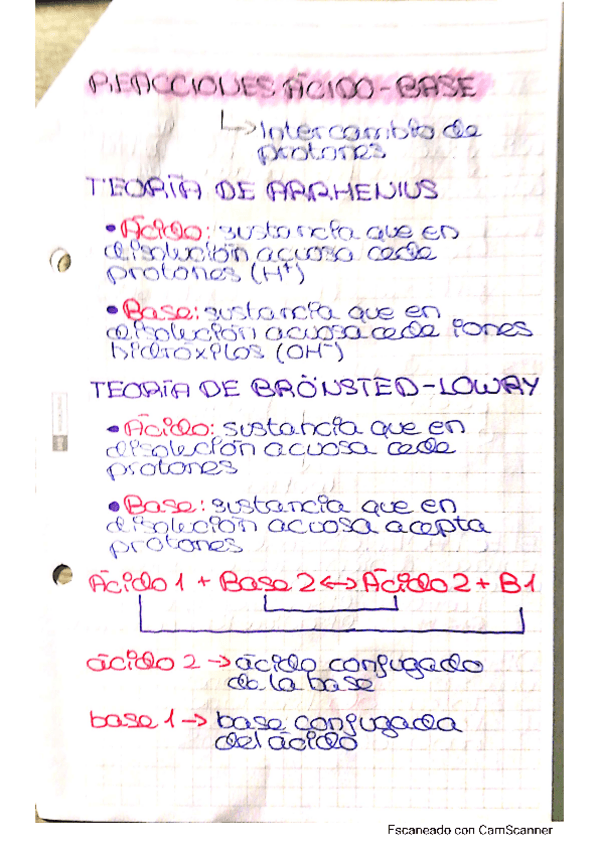 REACCIONES ÁCIDO-BASE
↳Intercambio de
protones
TEORÍA DE ARRHENIUS
•Ácido: sustancia que en
disolución acuosa cede
protones (H+)
•Base: sustancia que en
disolución acuosa cede iones
hidróxilos (OH-)
TEORÍA DE BRÖNSTED-LOWRY
•Ácido: sustancia que en
disolución acuosa cede
protones
•Base: sustancia que en
disolución acuosa acepta
protones
Ácido 1 + Base 2 <-> Ácido 2 + B1
ácido 2 -> ácido conjugado
de la base
base 1 -> base conjugada
del ácido
Escaneado con CamScanner